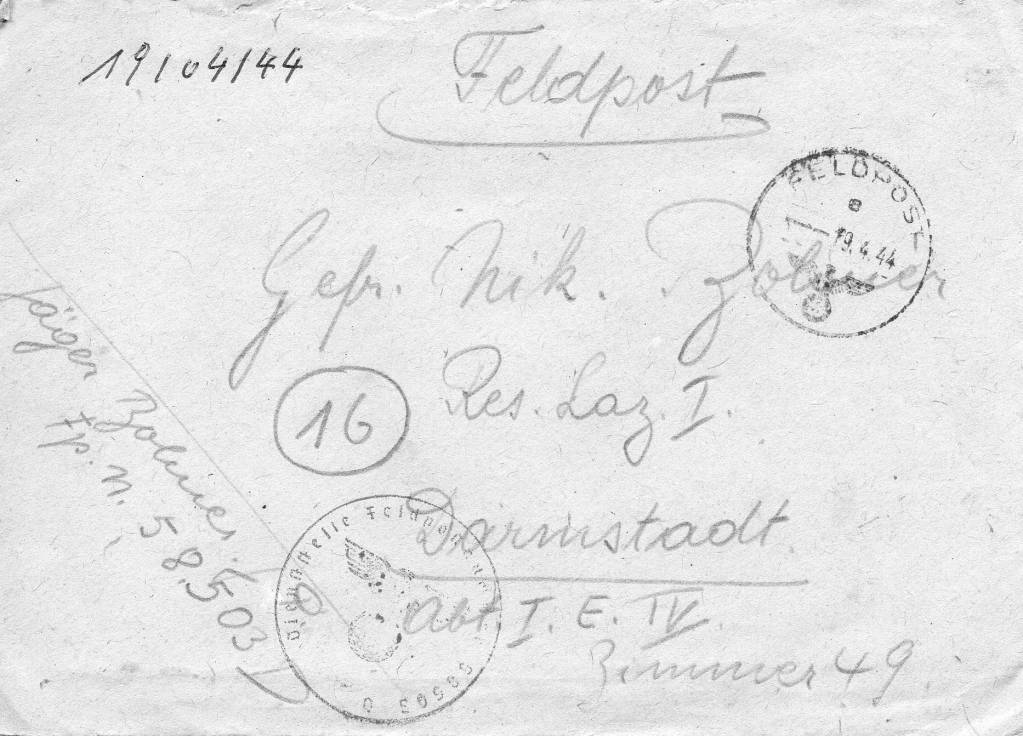 19/04/44
Feldpost
FELDPOST
a
19.4.44
Gefr. Nik. Bohmer
16
Res. Laz. I.
Darmstadt.
Abt. I. E. IV.
Zimmer 49.
Jäger
Fp. N. 58503 D
Dienststelle Feldpost
58503 D